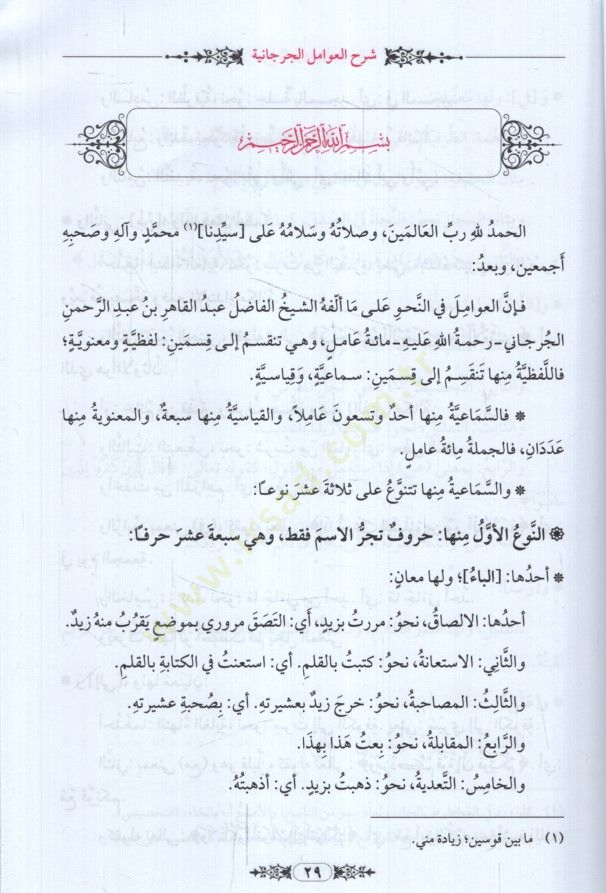 شرح العوامل الجرجانية
بسم الله الرحمن الرحيم
الحمدُ للهِ ربِّ العَالمَينَ، وصلاتُهُ وسَلامُهُ عَلى [سيِّدِنا](١) محمَّدٍ وآلِهِ وصَحبِهِ
أجمعين، وبعدُ:
فإنَّ العوامِلَ في النَّحوِ عَلى مَا ألَّفهُ الشيخُ الفاضلُ عبدُ القاهرِ بنُ عبدِ الرَّحمنِ
الجُرجاني -رحمةُ اللهِ عَليهِ- مائةُ عَاملٍ، وهي تنقسمُ إلى قِسمَينِ: لفظيَّةٍ ومعنويَّةٍ؛
فاللَّفظيَّةُ مِنها تَنقَسِمُ إلى قِسمَينِ: سماعيَّةٍ، وَقِياسيَّةٍ.
* فالسَّمَاعيَّةُ مِنها أحدٌ وتسعونَ عَامِلاً، والقياسيَّةُ مِنها سَبعةٌ، والمعنويةُ مِنها
عَدَدَانِ، فالجملةُ مِائةُ عَاملٍ.
* والسَّمَاعيةُ مِنها تتنوَّعُ على ثلاثةَ عشرَ نوعَاً:
❁ النَّوعُ الأوَّلُ مِنها: حروفٌ تجرُّ الاسمَ فقط، وهي سبعةَ عشرَ حرفَاً:
* أحدُها: [الباءُ]؛ ولها معانٍ:
أحدُها: الالصاقُ، نحوُ: مررتُ بزيدٍ، أَي: التَصَقَ مروري بموضعٍ يَقرُبُ مِنهُ زيدٌ.
والثَّاني: الاستعانةُ، نحوُ: كتبتُ بالقلمِ. أي: استعنتُ في الكتابةِ بالقلمِ.
والثَّالِثُ: المصاحبةُ، نحوُ: خرجَ زيدٌ بعشيرتهِ. أي: بِصُحبةِ عشيرتهِ.
والرَّابعُ: المقابلةُ، نحوُ: بعتُ هَذا بِهَذا.
والخامِسُ: التَّعديةُ، نحوُ: ذهبتُ بزيدٍ. أي: أذهبتُهُ.
(١) ما بين قوسين؛ زيادة مني.
٢٩